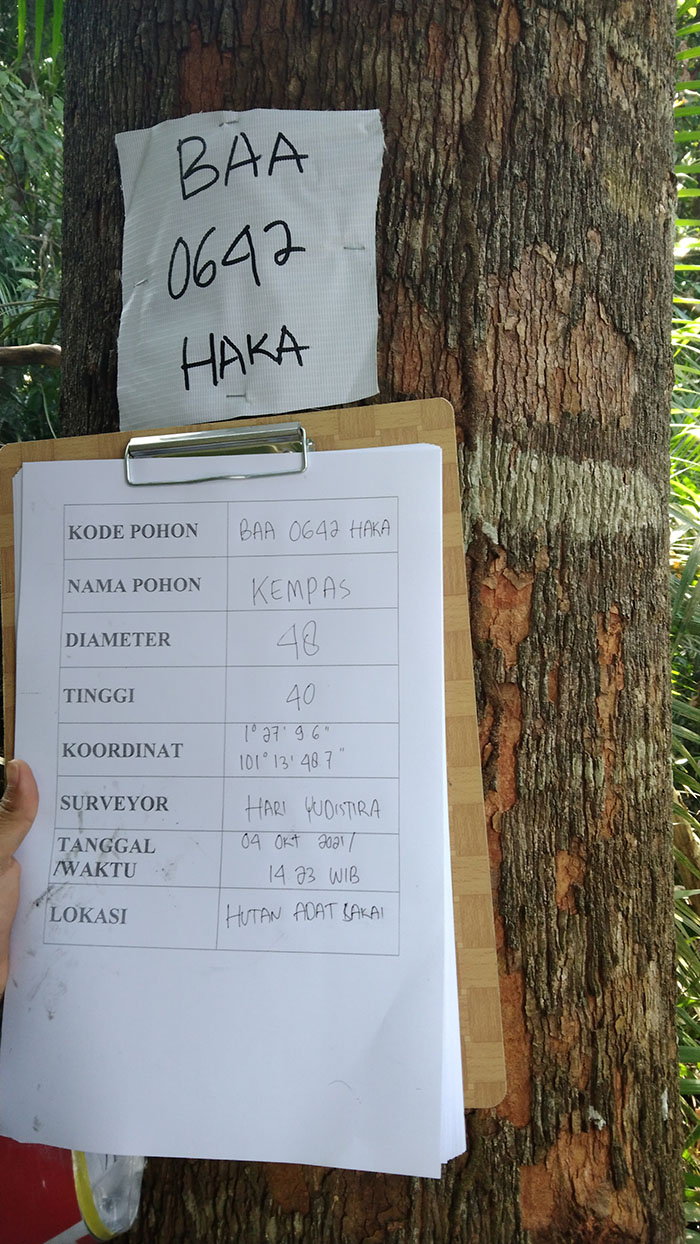 BAA
0642
HAKA
KODE POHON BAA 0642 HAKA
NAMA POHON KEMPAS
DIAMETER 48
TINGGI 40
KOORDINAT 1° 27' 9 6"
101° 13' 48 7"
SURVEYOR HARI YUDISTIRA
TANGGAL 04 OKT 2021/
/WAKTU 14 23 WIB
LOKASI HUTAN ADAT BAKAI